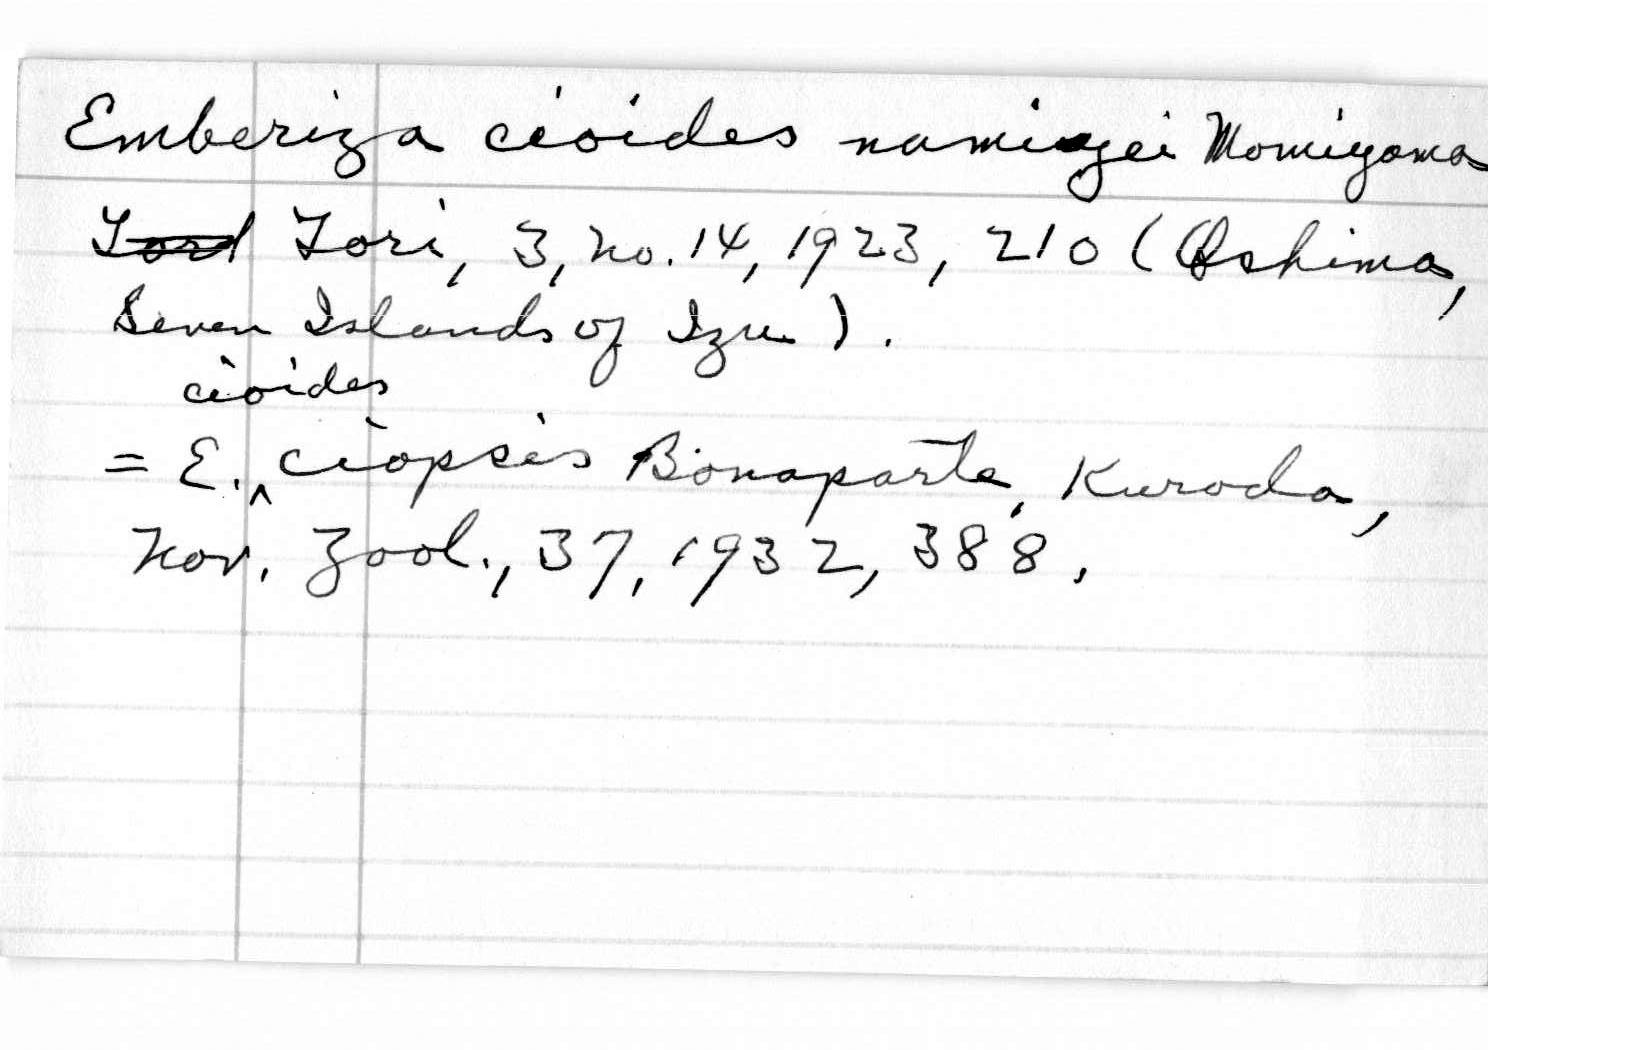 Emberiza cioides namiyei Momiyama
Tori, 3, no. 14, 1923, 210 (Oshima,
Seven Islands of Izu).
cioides
= E. ‸ ciopsis Bonaparte, Kuroda,
Nov. Zool., 37, 1932, 388.